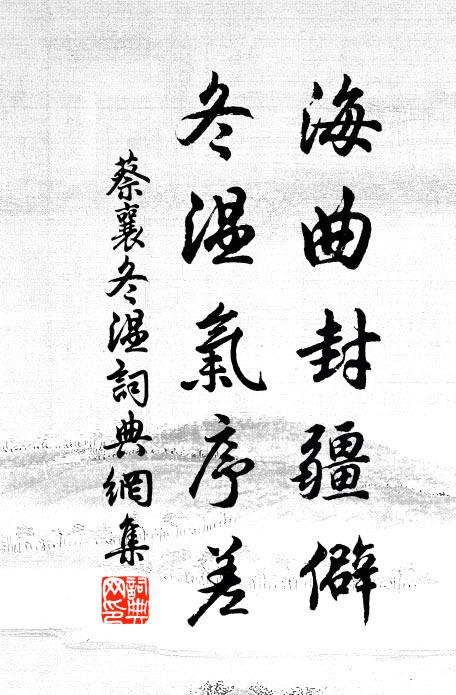 海曲封疆僻
冬温氣序差
蔡襄冬温詞典網集
詞典网印